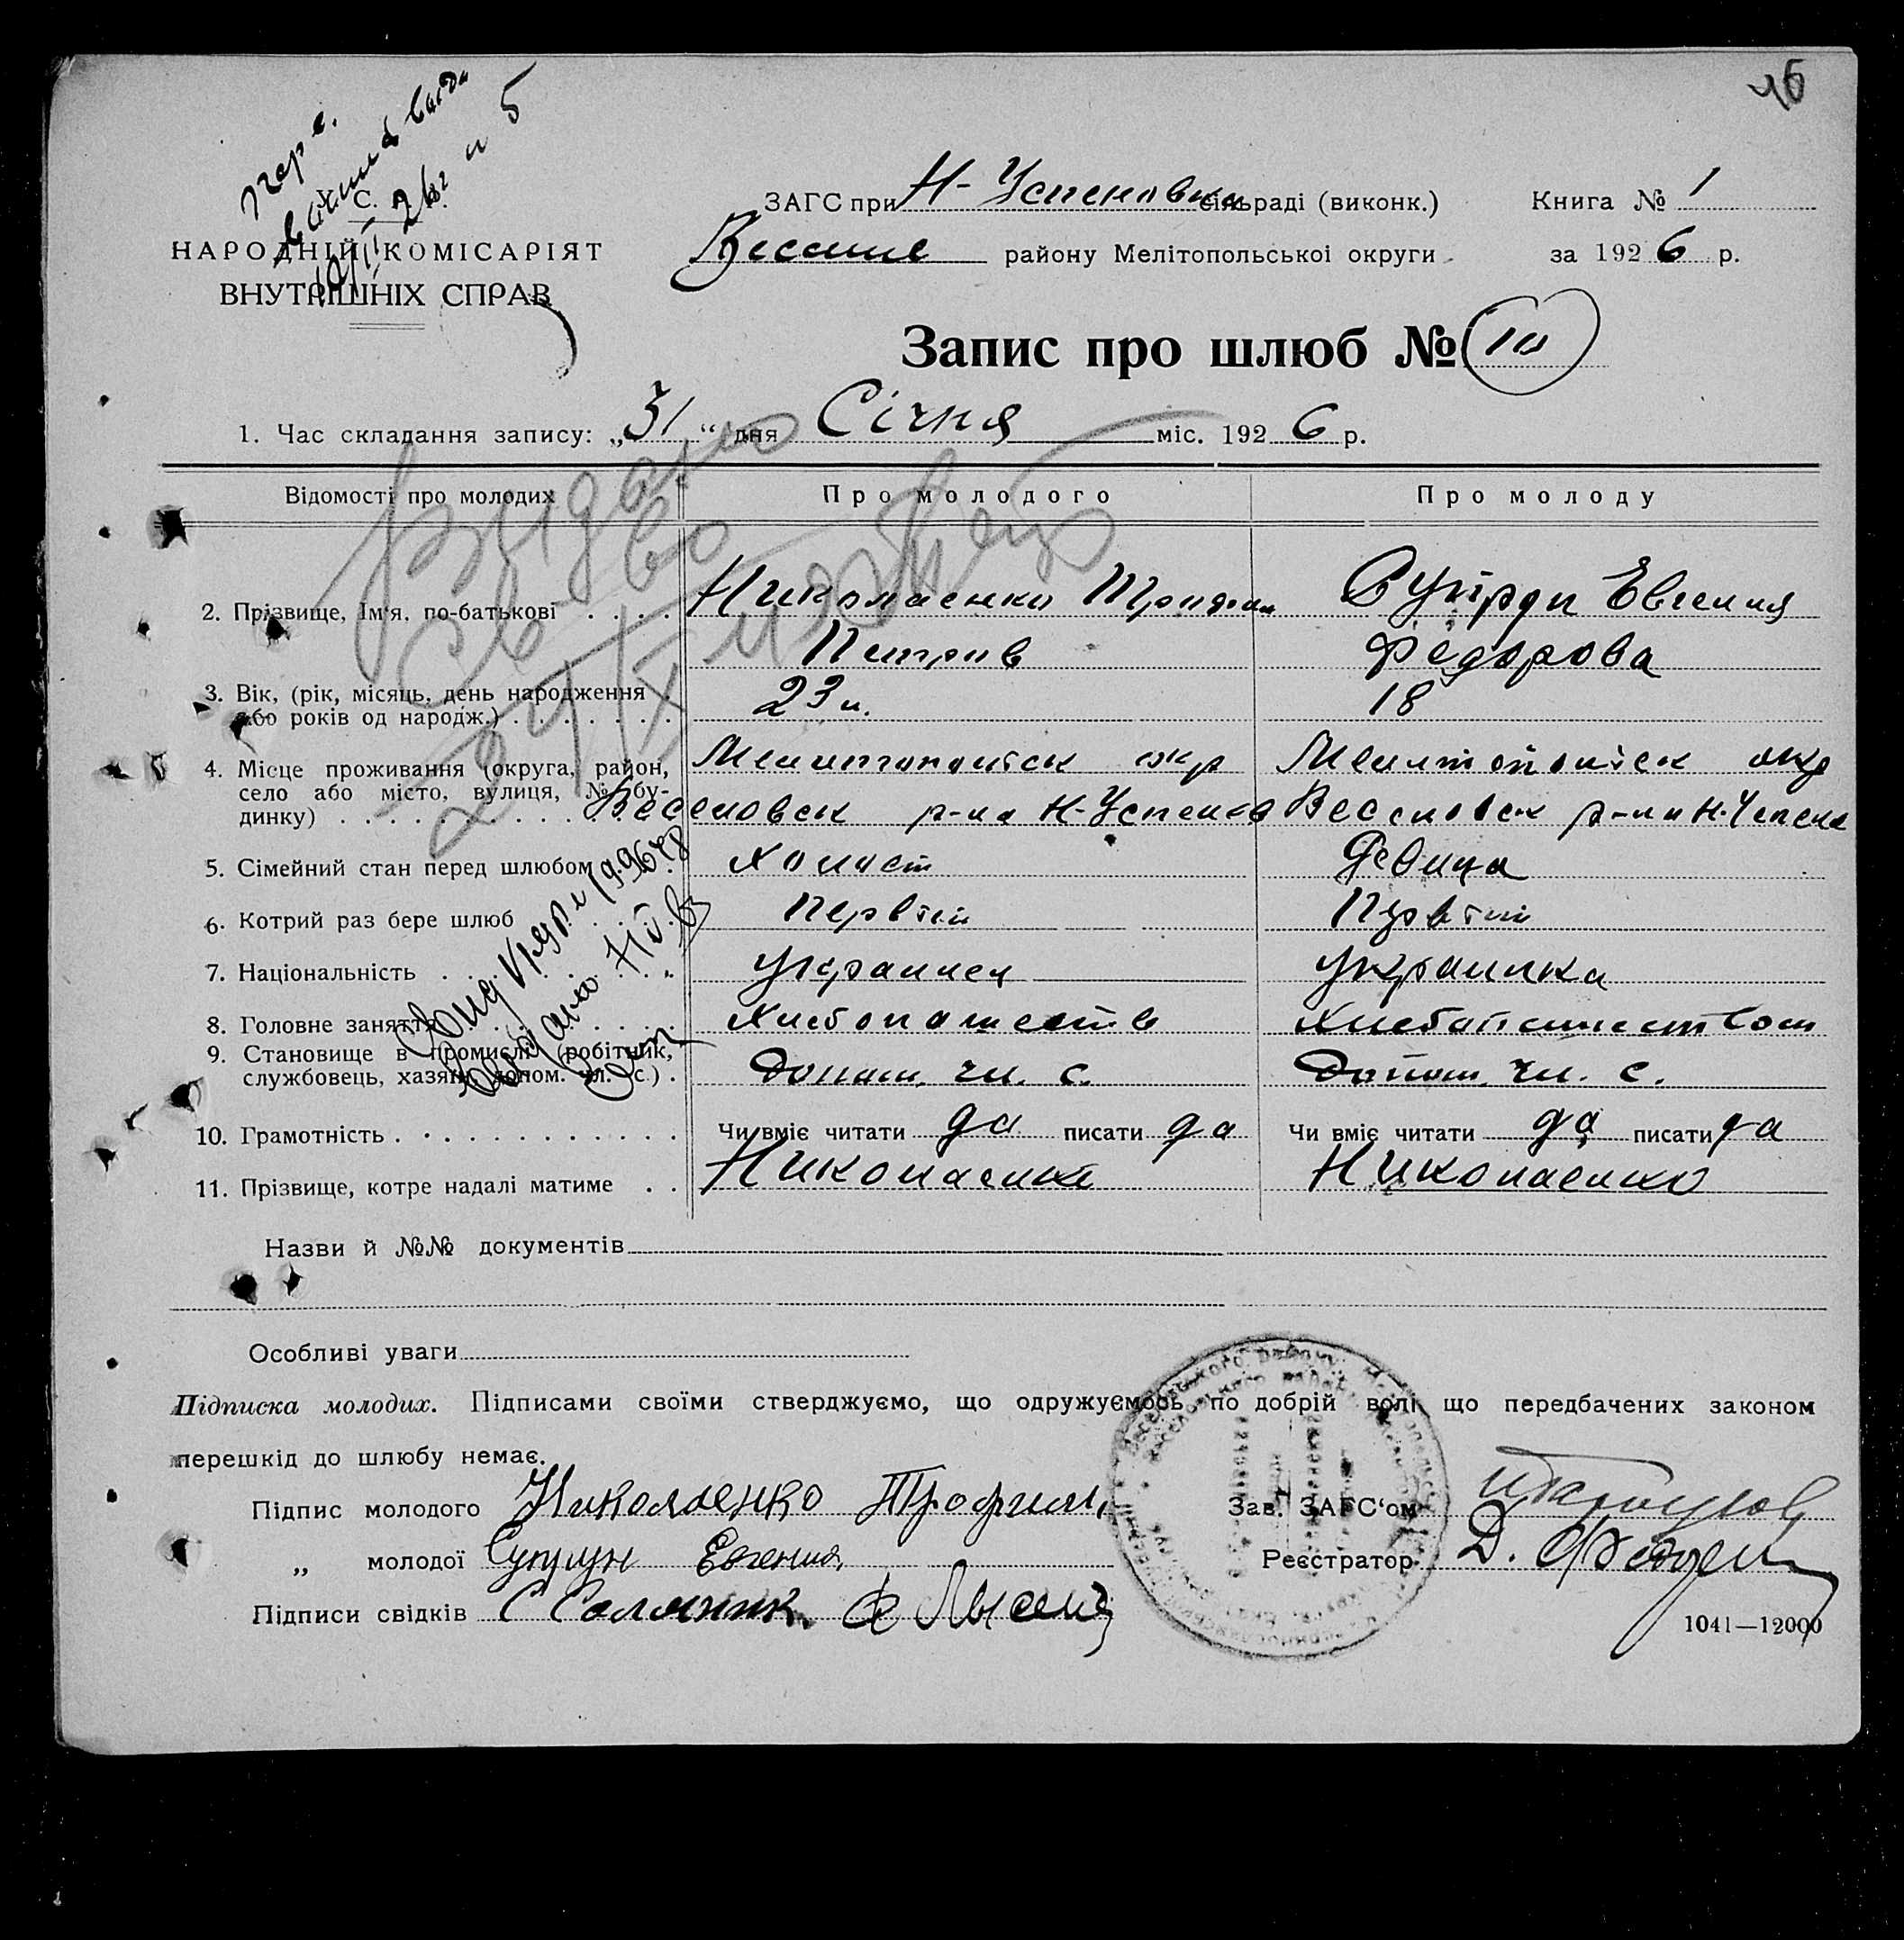 У. С. Р. Р.
НАРОДНІЙ КОМІСАРІЯТ
ВНУТРІШНІХ СПРАВ
ЗАГС при Н-Успеновки сільраді (виконк.) Книга № 1
району Мелітопольської округи за 1926 р.
Запис про шлюб № 10
1. Час складання запису: „31“ дня Січня міс. 1926 р.
Відомості про молодих Про молодого Про молоду
2. Прізвище, Ім'я, по-батькові Николаенко Трофим Евгения
Петров Федорова
3. Вік, (рік, місяць, день народження 23 18
або років од народж.)
4. Місце проживання (округа, район, Мелитопольск окр Мелитопольск окр
село або місто, вулиця, № бу- Веселовск р-на Н-Успенов Веселовск р-на Н-Успенов
динку)
5. Сімейний стан перед шлюбом холост Девица
6. Котрий раз бере шлюб Первый Первый
7. Національність Украинец Украинка
8. Головне заняття Хлебопашеств Хлебопашеством
9. Становище в промислі (робітник, Допом. чл. с. Допом. чл. с.
службовець, хазяїн, допом. чл. с.)
10. Грамотність Чи вміє читати да писати да Чи вміє читати да писати да
11. Прізвище, котре надалі матиме Николаенко Николаенко
Назви й №№ документів
Особливі уваги
Підписка молодих. Підписами своїми стверджуємо, що одружуємось по добрій волі, що передбачених законом
перешкід до шлюбу немає.
Підпис молодого Николаенко Трофим Зав. ЗАГС'ом
„ молодої Супрун Евгения Реєстратор Д.
Підписи свідків
1041—12000